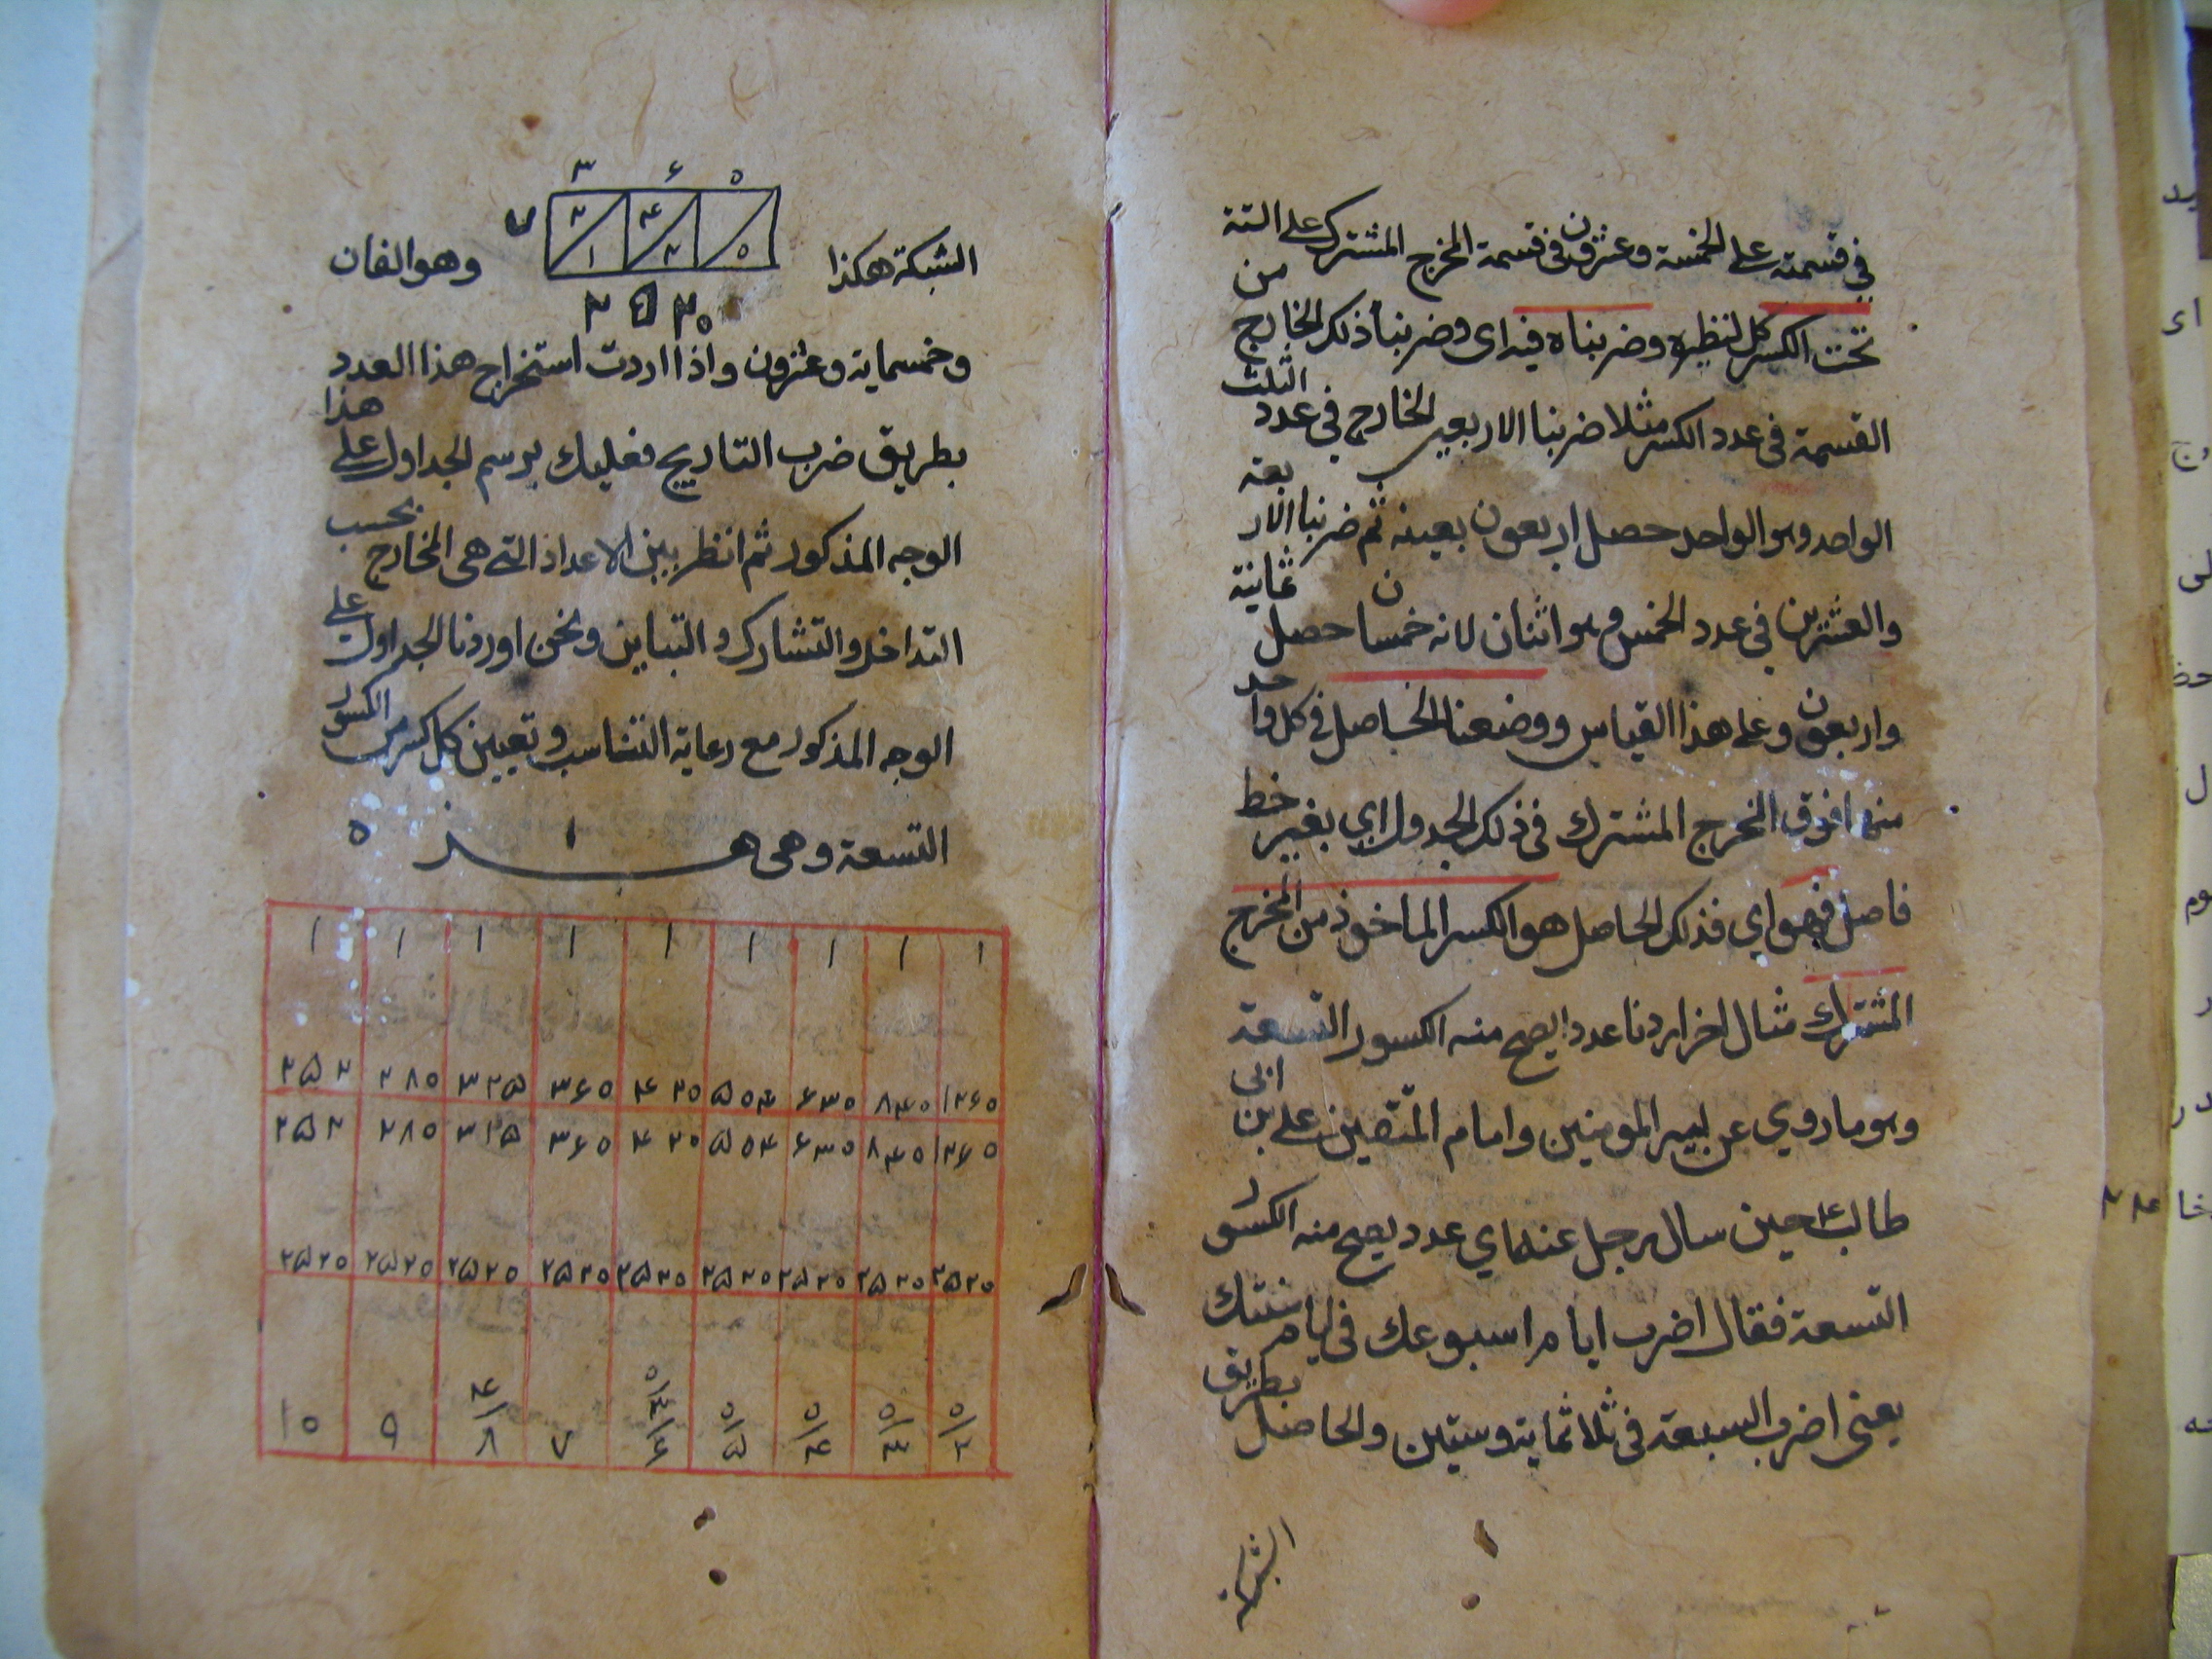 في قسمته على الخمسة وعشرون في قسمة المخرج المشترك على الستة من
تحت الكسر كل لنظيره وضربناه فيه اى وضربنا ذلك الخارج
القسمة في عدد الكسر مثلا ضربنا الاربعين الخارج في عدد الثلث
الواحد وهو الواحد حصل اربعون بعينه ثم ضربنا الاربعة
والعشرين في عدد الخمس وهو اثنان لانه خمسان حصل ثمانية
واربعون وعلى هذا القياس ووضعنا الحاصل في كل واحد
منها فوق المخرج المشترك في ذلك الجدول اي بغير خط
فاصل فهو اي فذلك الحاصل هو الكسر الماخوذ من المخرج
المشترك مثال اخر اردنا عددا يصح منه الكسور التسعة
وهو ما روي عن امير المومنين وامام المتقين علي بن ابى
طالب ع حين سال رجل عنه اي عدد يصح منه الكسور
التسعة فقال اضرب ايام اسبوعك في ايام سنتك
يعنى اضرب السبعة في ثلاثمائة وستين والحاصل بطريق
الشبكة
۳ ۶ ۵
۷ ۲ ۴
۱ ۲ ۵
الشبكة هكذا وهو الفان
۲ ۵ ۲ ۰
وخمسماية وعشرون واذا اردت استخراج هذا العدد
بطريق ضرب التاريج فعليك برسم الجداول على هذا
الوجه المذكور ثم انظر بين الاعداد التى هى المخارج بحسب
التداخل والتشارك والتباين ونحن اوردنا الجداول على
الوجه المذكور مع رعاية التناسب وتعيين كل كسر من الكسور
التسعة وهى هذا ه
۱ ۱ ۱ ۱ ۱ ۱ ۱ ۱ ۱
۱۲۶۰ ۸۴۰ ۶۳۰ ۵۰۴ ۴۲۰ ۳۶۰ ۳۱۵ ۲۸۰ ۲۵۲
۱۲۶۰ ۸۴۰ ۶۳۰ ۵۰۴ ۴۲۰ ۳۶۰ ۳۱۵ ۲۸۰ ۲۵۲
۲۵۲۰ ۲۵۲۰ ۲۵۲۰ ۲۵۲۰ ۲۵۲۰ ۲۵۲۰ ۲۵۲۰ ۲۵۲۰ ۲۵۲۰
۰ ۰ ۰ ۰ ۰ ۴
۲ ۳ ۴ ۵ ۶ ۷ ۸ ۹ ۱۰